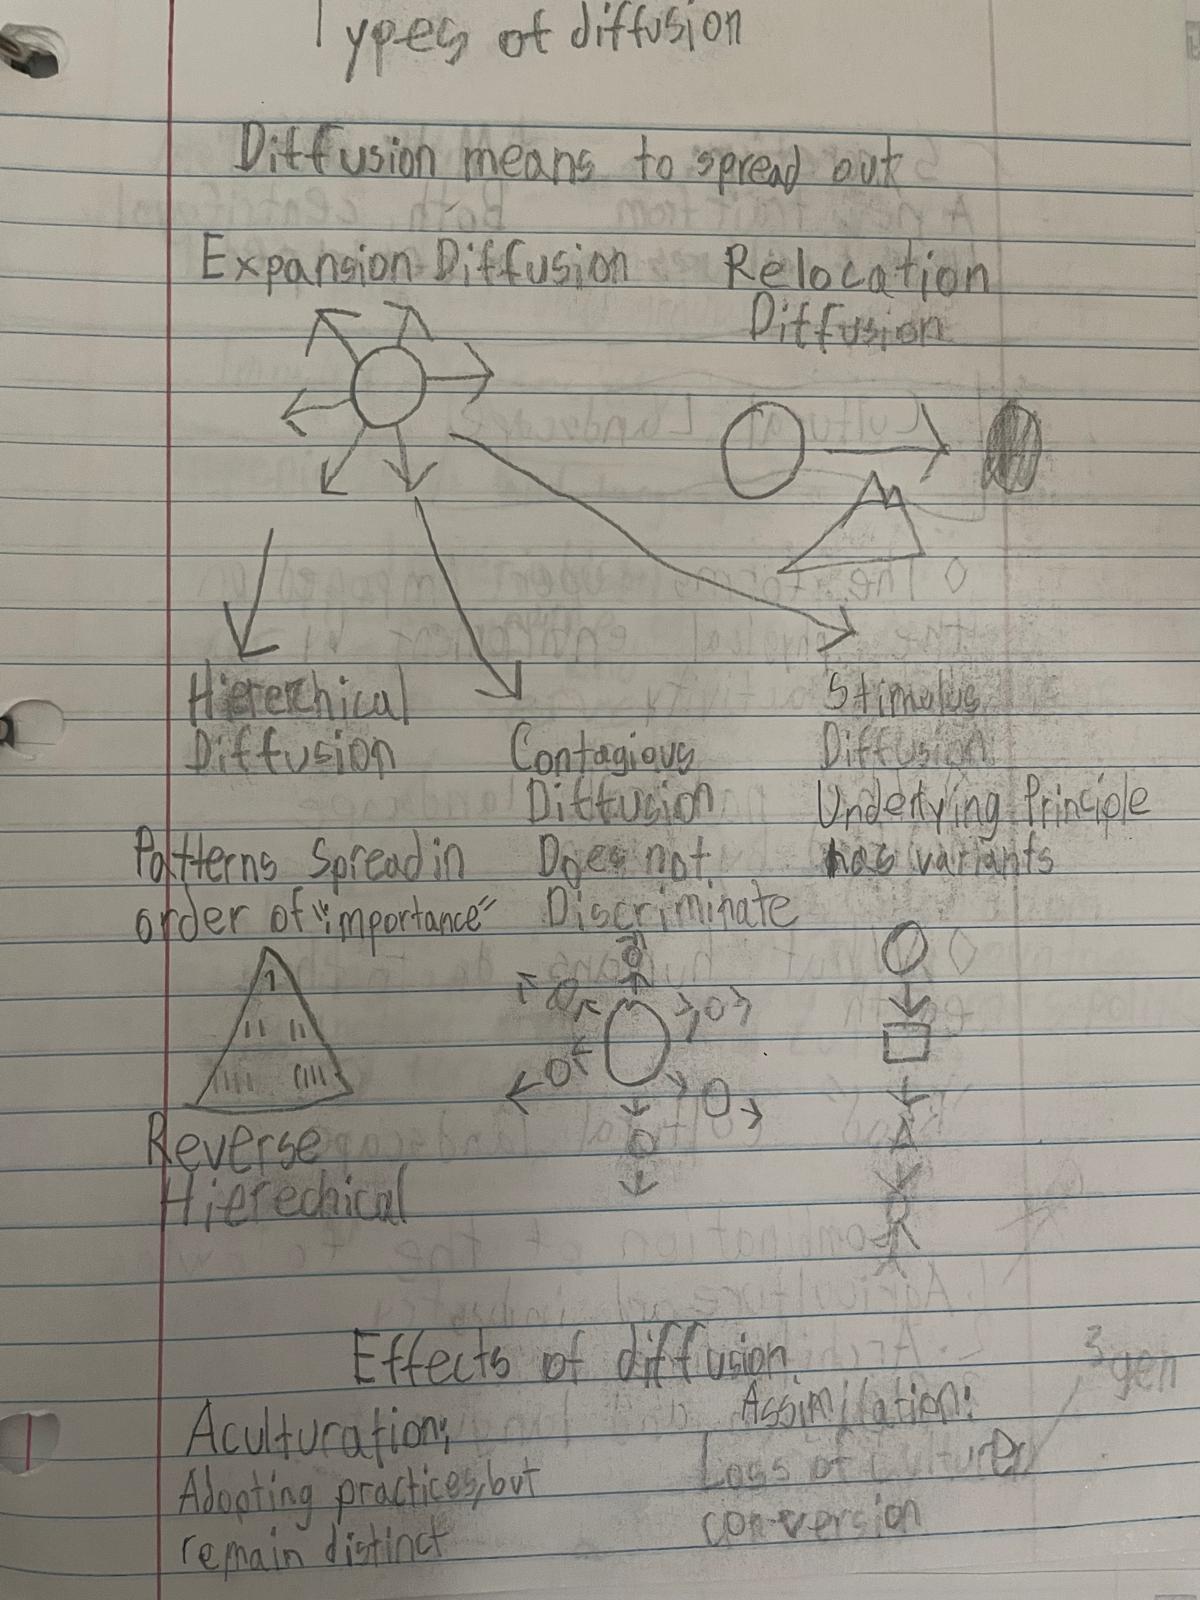 Types of diffusion
Diffusion means to spread out
Expansion Diffusion
Relocation
Diffusion
Hiererchical
Diffusion
Patterns Spread in
order of "importance"
1
11 11
1111 1111
Reverse
Hierechical
Contagious
Diffusion
Does not
Discriminate
Stimulus
Diffusion
Underlying Principle
has variants
Effects of diffusion
Aculturation;
Adopting practices, but
remain distinct
Assimilation:
Loss of
conversion
3 gen